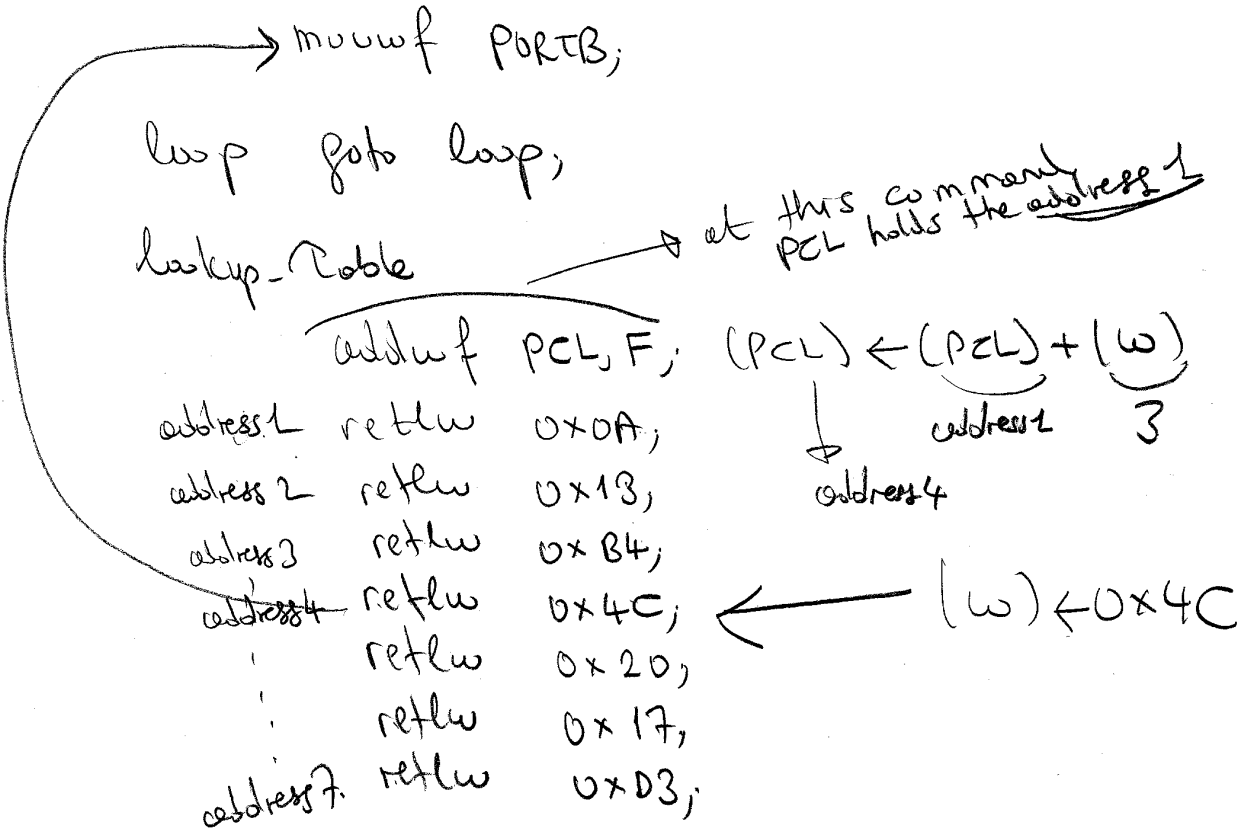 movwf PORTB;
loop goto loop;
at this command
PCL holds the address 1
lookup_Table
addwf PCL, F; (PCL) ← (PCL) + (W)
address1 3
address1 retlw 0x0A;
address4
address2 retlw 0x13;
address3 retlw 0xB4;
address4 retlw 0x4C; (W) ← 0x4C
retlw 0x20;
retlw 0x17;
address7. retlw 0xD3;